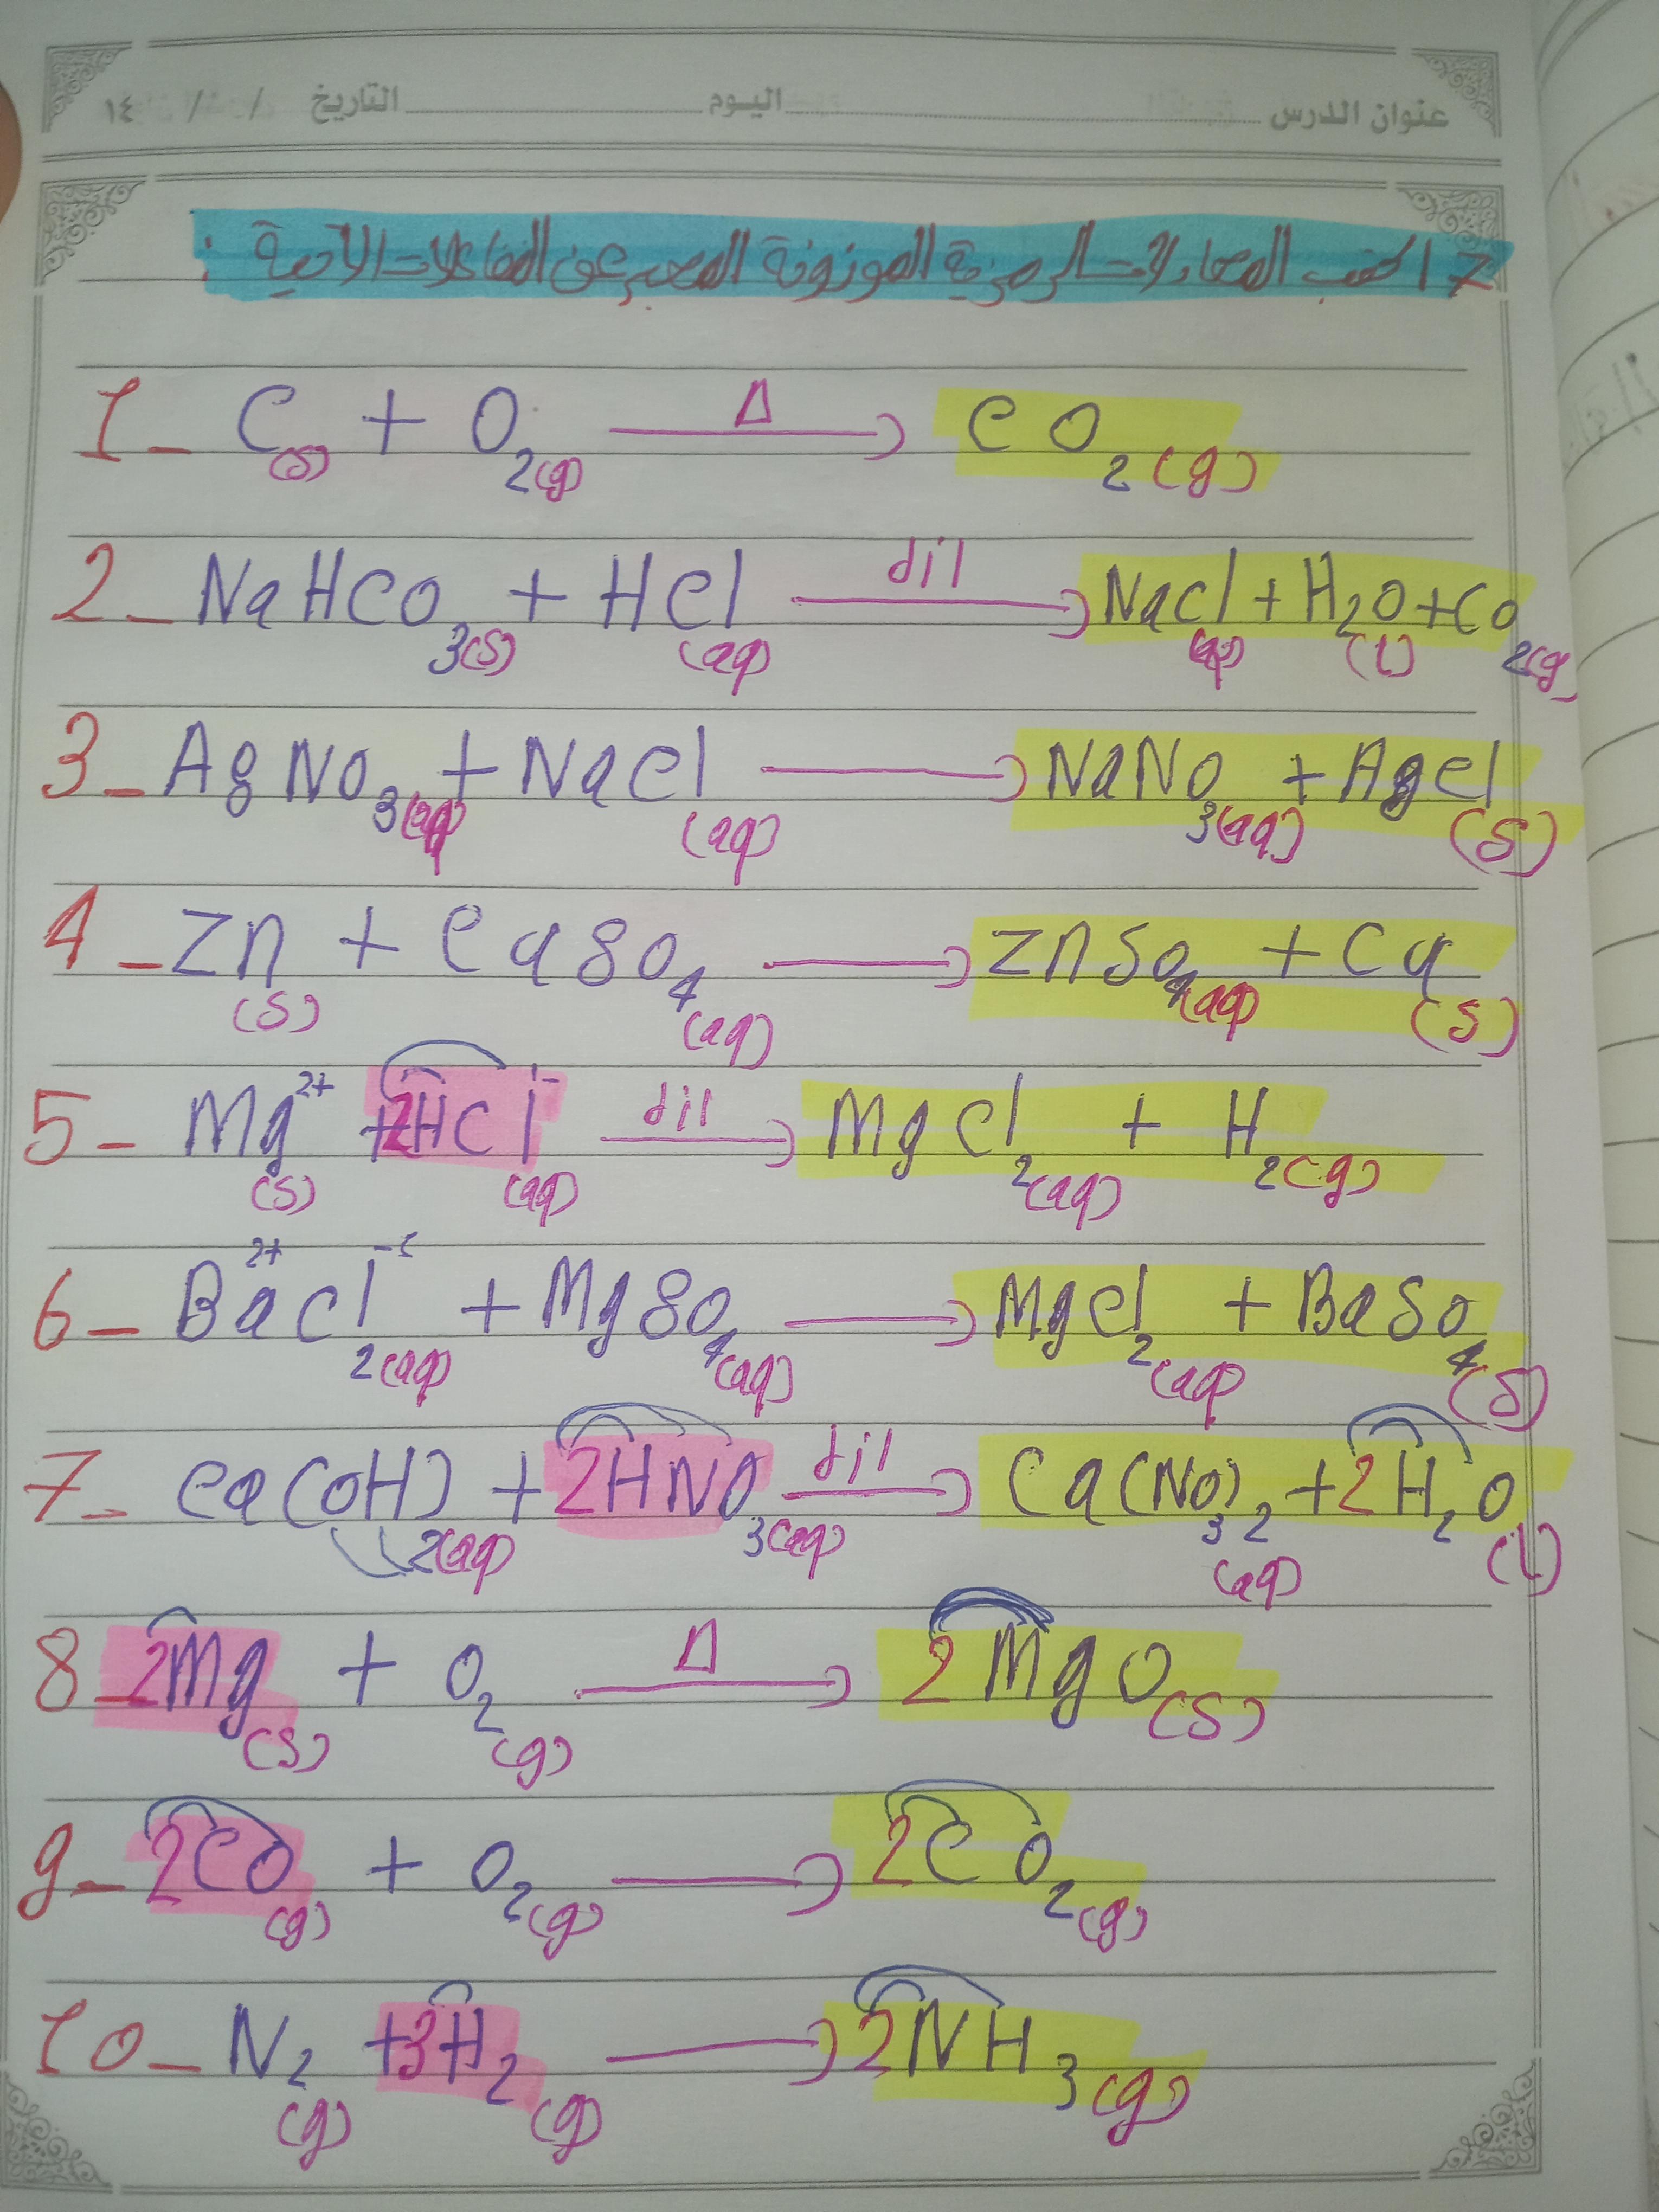 عنوان الدرس اليوم التاريخ / / ١٤
7 اكتب المعادلات الرمزية الموزونة المعبر عن التفاعلات الآتية :
1- C(s) + O2(g) —Δ→ CO2(g)
2- NaHCO3(s) + HCl(aq) —dil→ NaCl(aq) + H2O(l) + CO2(g)
3- AgNO3(aq) + NaCl(aq) → NaNO3(aq) + AgCl(s)
4- Zn(s) + CaSO4(aq) → ZnSO4(aq) + Ca(s)
5- Mg2+(s) + 2HCl-(aq) —dil→ MgCl2(aq) + H2(g)
6- Ba2+Cl-2(aq) + MgSO4(aq) → MgCl2(aq) + BaSO4(s)
7- Ca(OH)2(aq) + 2HNO3(aq) —dil→ Ca(NO3)2(aq) + 2H2O(l)
8- 2Mg(s) + O2(g) —Δ→ 2MgO(s)
9- 2CO(g) + O2(g) → 2CO2(g)
10- N2(g) + 3H2(g) → 2NH3(g)